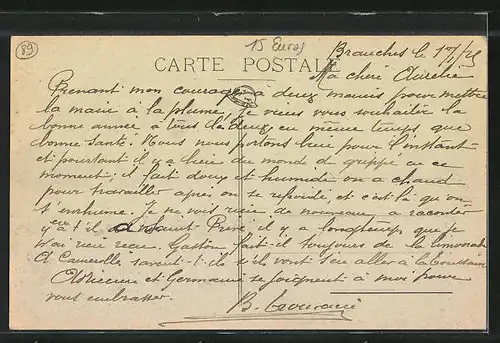 89
15 Euros
Branches le 17/1/25
CARTE POSTALE
Ma chère Aurélie
Prenant mon courage a deux mains pour mettre
la main à la plume, je viens vous souhaiter la
bonne année à tous les deux, en même temps que
bonne santé. Nous nous portons bien pour l'instant
et pourtant il y a bien du monde de grippé en ce
moment; il fait doux et humide on a chaud
pour travailler après on se refroidi, et c'est là qu'on
s'enrhume. Je ne vois rien de nouveau a raconter
y a t'il eu Saint Privé, il y a longtemps que je
n'ai rien reçu. Gaston fait-il toujours de la limonade
et Camille savent-t-ils s'ils vont s'en aller à la Toussaint
et Germaine se joignent à moi pour
vous embrasser.
B.